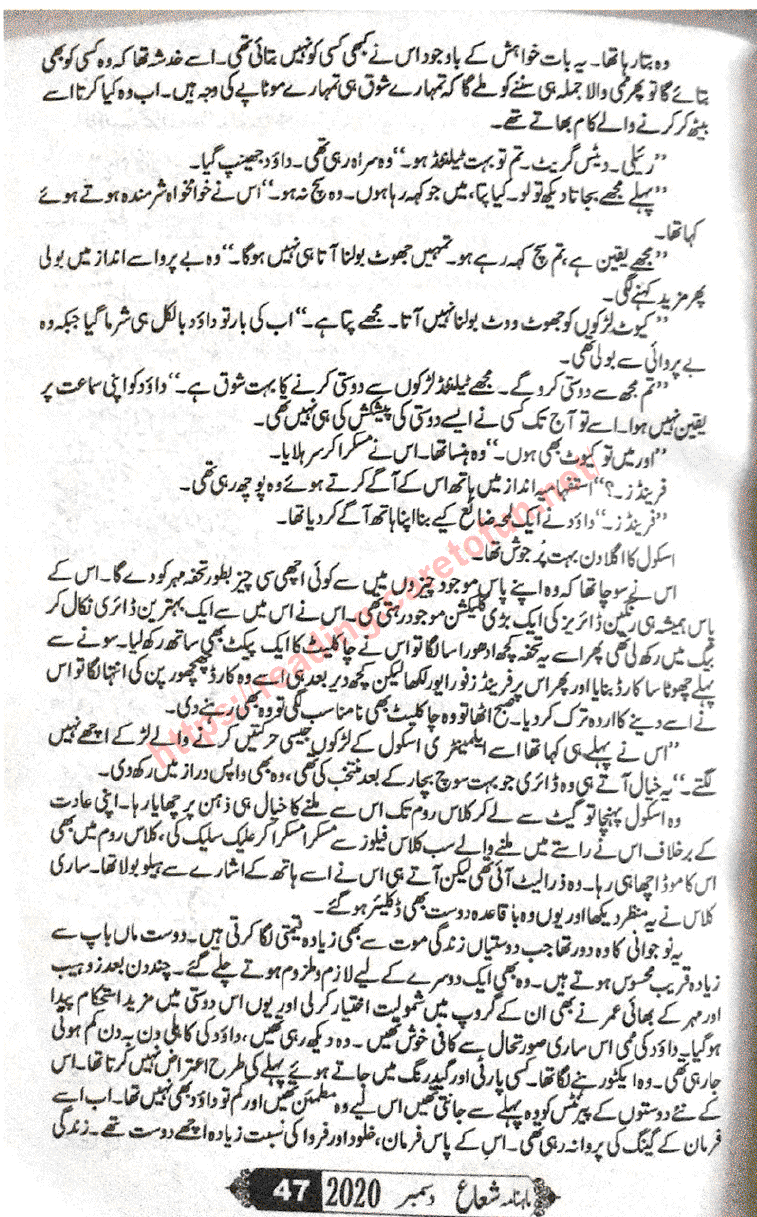 وہ بتا رہا تھا۔ یہ بات خواہش کے باوجود اس نے کبھی کسی کو نہیں بتائی تھی۔ اسے خدشہ تھا کہ وہ کسی کو بھی
بتائے گا تو پھر ممی والا جملہ ہی سننے کو ملے گا کہ تمہارے شوق ہی تمہارے موٹاپے کی وجہ ہیں۔ اب وہ کیا کرتا اسے
بیٹھ کر کرنے والے کام بھاتے تھے۔
”رئیلی۔ دیٹس گریٹ۔ تم تو بہت ٹیلنٹڈ ہو۔“ وہ سراہ رہی تھی۔ داؤد جھینپ گیا۔
”پہلے مجھے بجاتا دیکھ تو لو۔ کیا پتا، میں جو کہہ رہا ہوں۔ وہ سچ نہ ہو۔“ اس نے خوامخواہ شرمندہ ہوتے ہوئے
کہا تھا۔
”مجھے یقین ہے، تم سچ کہہ رہے ہو۔ تمہیں جھوٹ بولنا آتا ہی نہیں ہوگا۔“ وہ بے پروا سے انداز میں بولی
پھر مزید کہنے لگی۔
”کیوٹ لڑکوں کو جھوٹ ووٹ بولنا نہیں آتا۔ مجھے پتا ہے۔“ اب کی بار تو داؤد بالکل ہی شرما گیا جبکہ وہ
بے پروائی سے بولی تھی۔
”تم مجھ سے دوستی کرو گے۔ مجھے ٹیلنٹڈ لڑکوں سے دوستی کرنے کا بہت شوق ہے۔“ داؤد کو اپنی سماعت پر
یقین نہیں ہوا۔ اسے تو آج تک کسی نے ایسے دوستی کی پیشکش کی ہی نہیں تھی۔
”اور میں تو کیوٹ بھی ہوں۔“ وہ ہنسا تھا۔ اس نے مسکرا کر سر ہلایا۔
فرینڈز۔؟“ استفہامیہ انداز میں ہاتھ اس کے آگے کرتے ہوئے وہ پوچھ رہی تھی۔
”فرینڈز۔“ داؤد نے ایک لمحہ ضائع کیے بنا اپنا ہاتھ آگے کر دیا تھا۔
اسکول کا اگلا دن بہت پُرجوش تھا۔
اس نے سوچا تھا کہ وہ اپنے پاس موجود چیزوں میں سے کوئی اچھی سی چیز بطور تحفہ مہر کو دے گا۔ اس کے
پاس ہمیشہ ہی رنگین ڈائریز کی ایک بڑی کلیکشن موجود رہتی تھی۔ اس نے اس میں سے ایک بہترین ڈائری نکال کر
بیگ میں رکھ لی تھی پھر اسے یہ تحفہ کچھ ادھورا سا لگا تو اس نے چاکلیٹ کا ایک پیکٹ بھی ساتھ رکھ لیا۔ سونے سے
پہلے چھوٹا سا کارڈ بنایا اور پھر اس پر فرینڈز فور ایور لکھا لیکن کچھ دیر بعد ہی اسے وہ کارڈ چھچھورپن کی انتہا لگا تو اس
نے اسے دینے کا اردہ ترک کر دیا۔ صبح اٹھا تو وہ چاکلیٹ بھی نامناسب لگی تو وہ بھی رہنے دی۔
”اس نے پہلے ہی کہا تھا اسے ایلیمنٹری اسکول کے لڑکوں جیسی حرکتیں کرنے والے لڑکے اچھے نہیں
لگتے۔“ یہ خیال آتے ہی وہ ڈائری جو بہت سوچ بچار کے بعد منتخب کی تھی، وہ بھی واپس دراز میں رکھ دی۔
وہ اسکول پہنچا تو گیٹ سے لے کر کلاس روم تک اس سے ملنے کا خیال ہی ذہن پر چھایا رہا۔ اپنی عادت
کے برخلاف اس نے راستے میں ملنے والے سب کلاس فیلوز سے مسکرا مسکرا کر علیک سلیک کی، کلاس روم میں بھی
اس کا موڈ اچھا ہی رہا۔ وہ ذرا لیٹ آئی تھی لیکن آتے ہی اس نے اسے ہاتھ کے اشارے سے ہیلو بولا تھا۔ ساری
کلاس نے یہ منظر دیکھا اور یوں وہ باقاعدہ دوست بھی ڈکلیئر ہو گئے۔
یہ نوجوانی کا وہ دور تھا جب دوستیاں زندگی موت سے بھی زیادہ قیمتی لگا کرتی ہیں۔ دوست ماں باپ سے
زیادہ قریب محسوس ہوتے ہیں۔ وہ بھی ایک دوسرے کے لیے لازم و ملزوم ہوتے چلے گئے۔ چند دن بعد زوہیب
اور مہر کے بھائی عمر نے بھی ان کے گروپ میں شمولیت اختیار کر لی اور یوں اس دوستی میں مزید استحکام پیدا
ہو گیا۔ داؤد کی ممی اس ساری صورتحال سے کافی خوش تھیں۔ وہ دیکھ رہی تھیں، داؤد کی کاہلی دن بہ دن کم ہوتی
جا رہی تھی۔ وہ ایکٹو رہنے لگا تھا۔ کسی پارٹی اور گیدرنگ میں جاتے ہوئے پہلے کی طرح اعتراض نہیں کرتا تھا۔ اس
کے نئے دوستوں کے پیرنٹس کو وہ پہلے سے جانتی تھیں اس لیے وہ مطمئن تھیں اور گم تو داؤد بھی نہیں تھا۔ اب اسے
فرمان کے گینگ کی پروا نہ رہی تھی۔ اس کے پاس فرمان، خلود اور فروا کی نسبت زیادہ اچھے دوست تھے۔ زندگی
ماہنامہ شعاع دسمبر 2020 47
https://reading.caretofun.net/